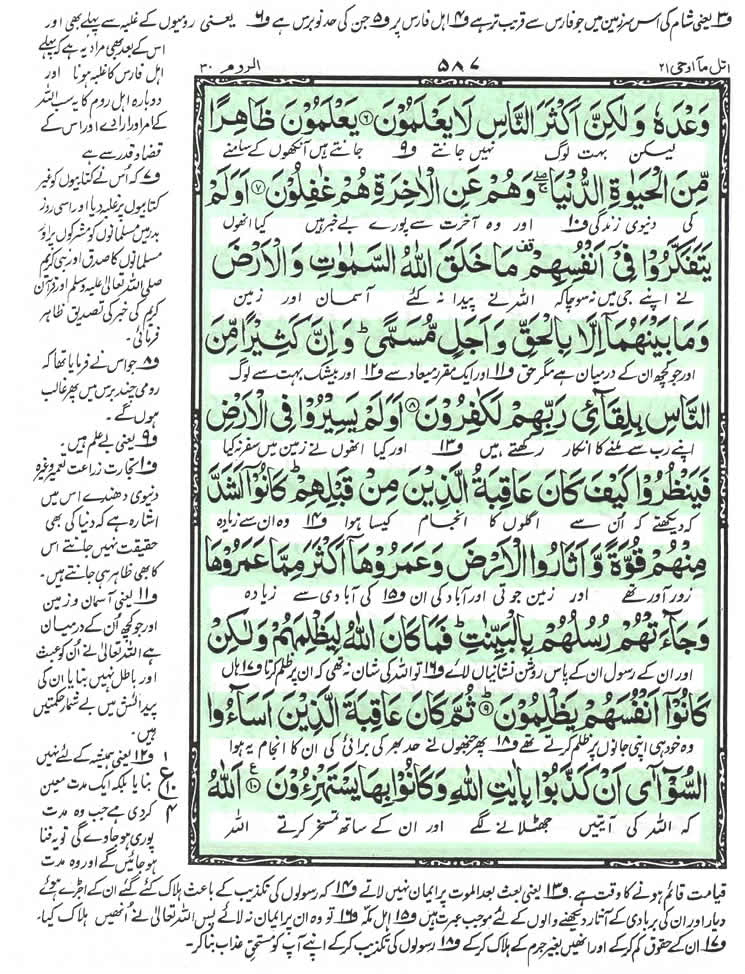 ف۳ یعنی شام کی اس سرزمین میں جو فارس سے قریب تر ہے ف۴ اہل فارس پر ف۵ جن کی حد نو برس ہے ف۶ یعنی رومیوں کے غلبہ سے پہلے بھی اور
اس کے بعد بھی مراد یہ ہے کہ پہلے
اہل فارس کا غلبہ ہونا اور
دوبارہ اہل روم کا یہ سب اللہ
کے امر اور ارادے اور اس کے
قضا و قدر سے ہے
ف۷ کہ اس نے کتابیوں کو غیر
کتابیوں پر غلبہ دیا اور اسی روز
بدر میں مسلمانوں کو مشرکوں پر اور
مسلمانوں کا صدق اور نبی کریم
صلی اللہ تعالیٰ علیہ وسلم اور قرآن
کریم کی خبر کی تصدیق ظاہر
فرمائی۔
ف۸ جو اس نے فرمایا تھا کہ
رومی چند برس میں پھر غالب
ہوں گے۔
ف۹ یعنی بے علم ہیں۔
ف۱۰ تجارت زراعت تعمیر وغیرہ
دنیوی دھندے اس میں
اشارہ ہے کہ دنیا کی بھی
حقیقت نہیں جانتے اس
کا بھی ظاہر ہی جانتے ہیں۔
ف۱۱ یعنی آسمان و زمین
اور جو کچھ اُن کے درمیان
ہے اللہ تعالیٰ نے اُن کو عبث
اور باطل نہیں بنایا ان کی
پیدائش میں بے شمار حکمتیں
ہیں۔
ف۱۲ یعنی ہمیشہ کے لئے نہیں
بنایا بلکہ ایک مدت معین
کر دی ہے جب وہ مدت
پوری ہو جاوے گی تو یہ فنا
ہو جائیں گے اور وہ مدت
اتل ما اوحی ۲۱
۵۸۷
الروم ۳۰
وَعْدَهٗ وَلٰكِنَّ اَكْثَرَ النَّاسِ لَا يَعْلَمُوْنَ ۶ يَعْلَمُوْنَ ظَاهِرًا
لیکن بہت لوگ نہیں جانتے ف۹ جانتے ہیں آنکھوں کے سامنے
مِّنَ الْحَيٰوةِ الدُّنْيَا ۖۚ وَهُمْ عَنِ الْاٰخِرَةِ هُمْ غٰفِلُوْنَ ۷ اَوَلَمْ
کی دنیوی زندگی ف۱۰ اور وہ آخرت سے پورے بے خبر ہیں کیا انھوں
يَتَفَكَّرُوْا فِيْۤ اَنْفُسِهِمْ ۫ مَا خَلَقَ اللّٰهُ السَّمٰوٰتِ وَالْاَرْضَ
نے اپنے جی میں نہ سوچا کہ اللہ نے پیدا نہ کئے آسمان اور زمین
وَمَا بَيْنَهُمَاۤ اِلَّا بِالْحَقِّ وَاَجَلٍ مُّسَمًّى ؕ وَاِنَّ كَثِيْرًا مِّنَ
اور جو کچھ ان کے درمیان ہے مگر حق ف۱۱ اور ایک مقرر میعاد سے ف۱۲ اور بیشک بہت سے لوگ
النَّاسِ بِلِقَآئِ رَبِّهِمْ لَكٰفِرُوْنَ ۸ اَوَلَمْ يَسِيْرُوْا فِي الْاَرْضِ
اپنے رب سے ملنے کا انکار رکھتے ہیں ف۱۳ اور کیا انھوں نے زمین میں سفر نہ کیا
فَيَنْظُرُوْا كَيْفَ كَانَ عَاقِبَةُ الَّذِيْنَ مِنْ قَبْلِهِمْ ؕ كَانُوْۤا اَشَدَّ
کہ دیکھتے کہ اُن سے اگلوں کا انجام کیسا ہوا ف۱۴ وہ ان سے زیادہ
مِنْهُمْ قُوَّةً وَّاَثَارُوا الْاَرْضَ وَعَمَرُوْهَاۤ اَكْثَرَ مِمَّا عَمَرُوْهَا
زور آور تھے اور زمین جوتی اور آباد کی ان ف۱۵ کی آبادی سے زیادہ
وَجَآءَتْهُمْ رُسُلُهُمْ بِالْبَيِّنٰتِ ؕ فَمَا كَانَ اللّٰهُ لِيَظْلِمَهُمْ وَلٰكِنْ
اور ان کے رسول ان کے پاس روشن نشانیاں لائے ف۱۶ تو اللہ کی شان نہ تھی کہ ان پر ظلم کرتا ف۱۷ ہاں
كَانُوْۤا اَنْفُسَهُمْ يَظْلِمُوْنَ ۹ ثُمَّ كَانَ عَاقِبَةَ الَّذِيْنَ اَسَآءُوا
وہ خود ہی اپنی جانوں پر ظلم کرتے تھے ف۱۸ پھر جنھوں نے حد بھر کی برائی کی ان کا انجام یہ ہوا
السُّوْٓاٰۤى اَنْ كَذَّبُوْا بِاٰيٰتِ اللّٰهِ وَكَانُوْا بِهَا يَسْتَهْزِءُوْنَ ۱۰ ع اَللّٰهُ
کہ اللہ کی آیتیں جھٹلانے لگے اور ان کے ساتھ تمسخر کرتے اللہ
۱
ع
۱۰
۴
قیامت قائم ہونے کا وقت ہے۔ ف۱۳ یعنی بعث بعد الموت پر ایمان نہیں لاتے ف۱۴ کہ رسولوں کی تکذیب کے باعث ہلاک کئے گئے ان کے اجڑے ہوئے
دیار اور ان کی بربادی کے آثار دیکھنے والوں کے لئے موجب عبرت ہیں ف۱۵ اہل مکہ ف۱۶ تو وہ ان پر ایمان نہ لائے پس اللہ تعالیٰ نے اُنھیں ہلاک کیا۔
ف۱۷ ان کے حقوق کم کر کے اور انھیں بغیر جرم کے ہلاک کر کے ف۱۸ رسولوں کی تکذیب کر کے اپنے آپ کو مستحق عذاب بنا کر۔